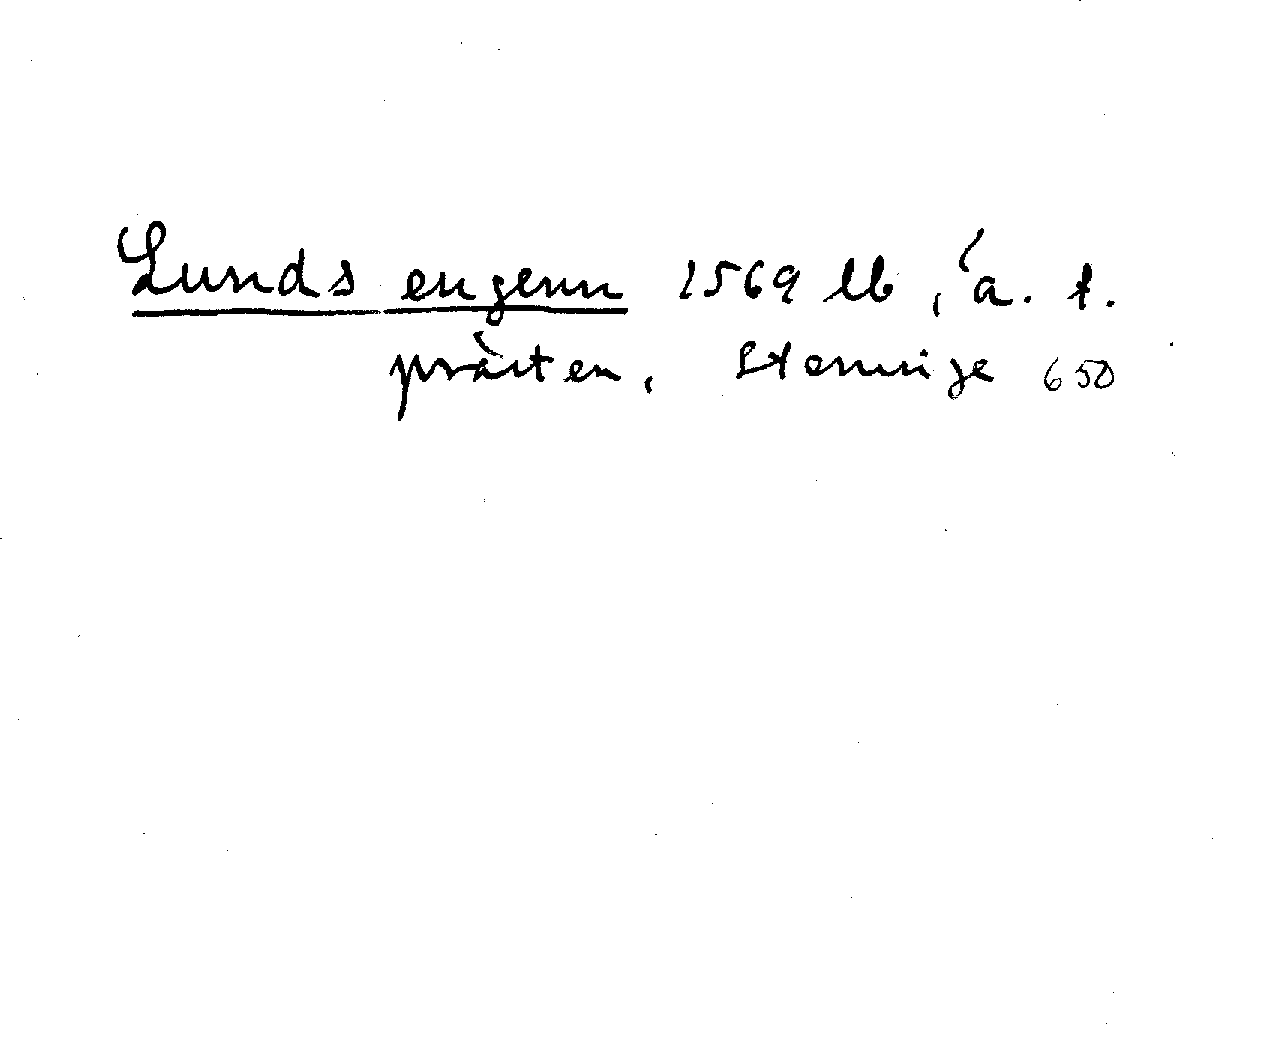 Lunds engenn 1569 lb, ä. t.
prästen, Stenninge 650